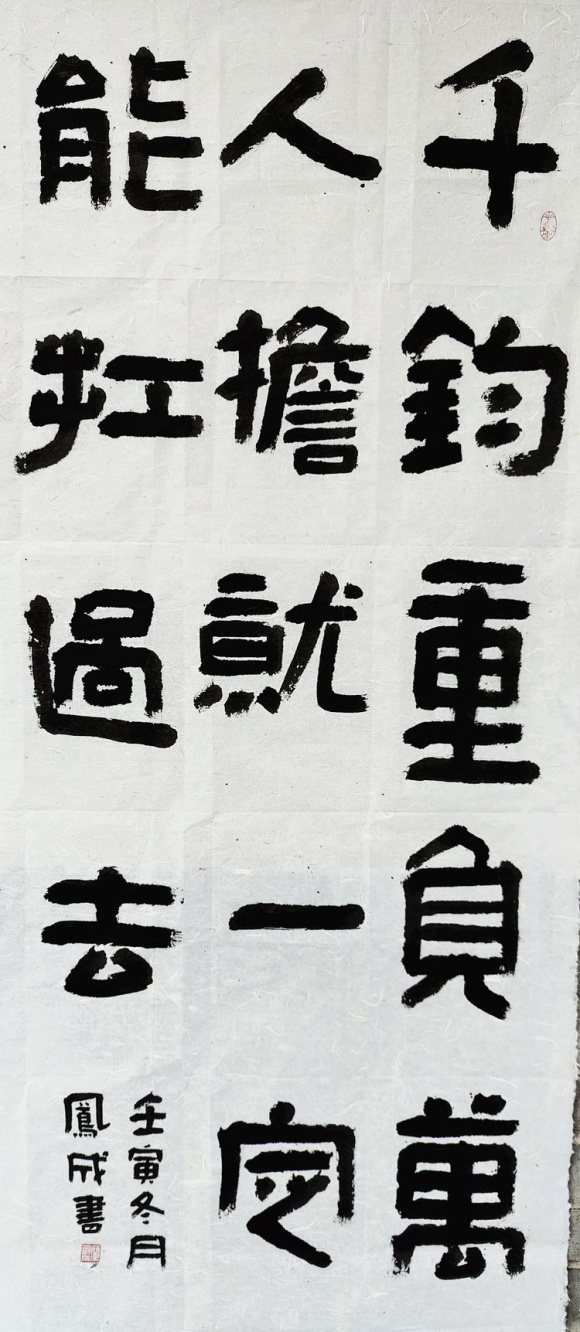 千鈞重負萬
人擔就一定
能扛過去
壬寅冬月
鳳成書